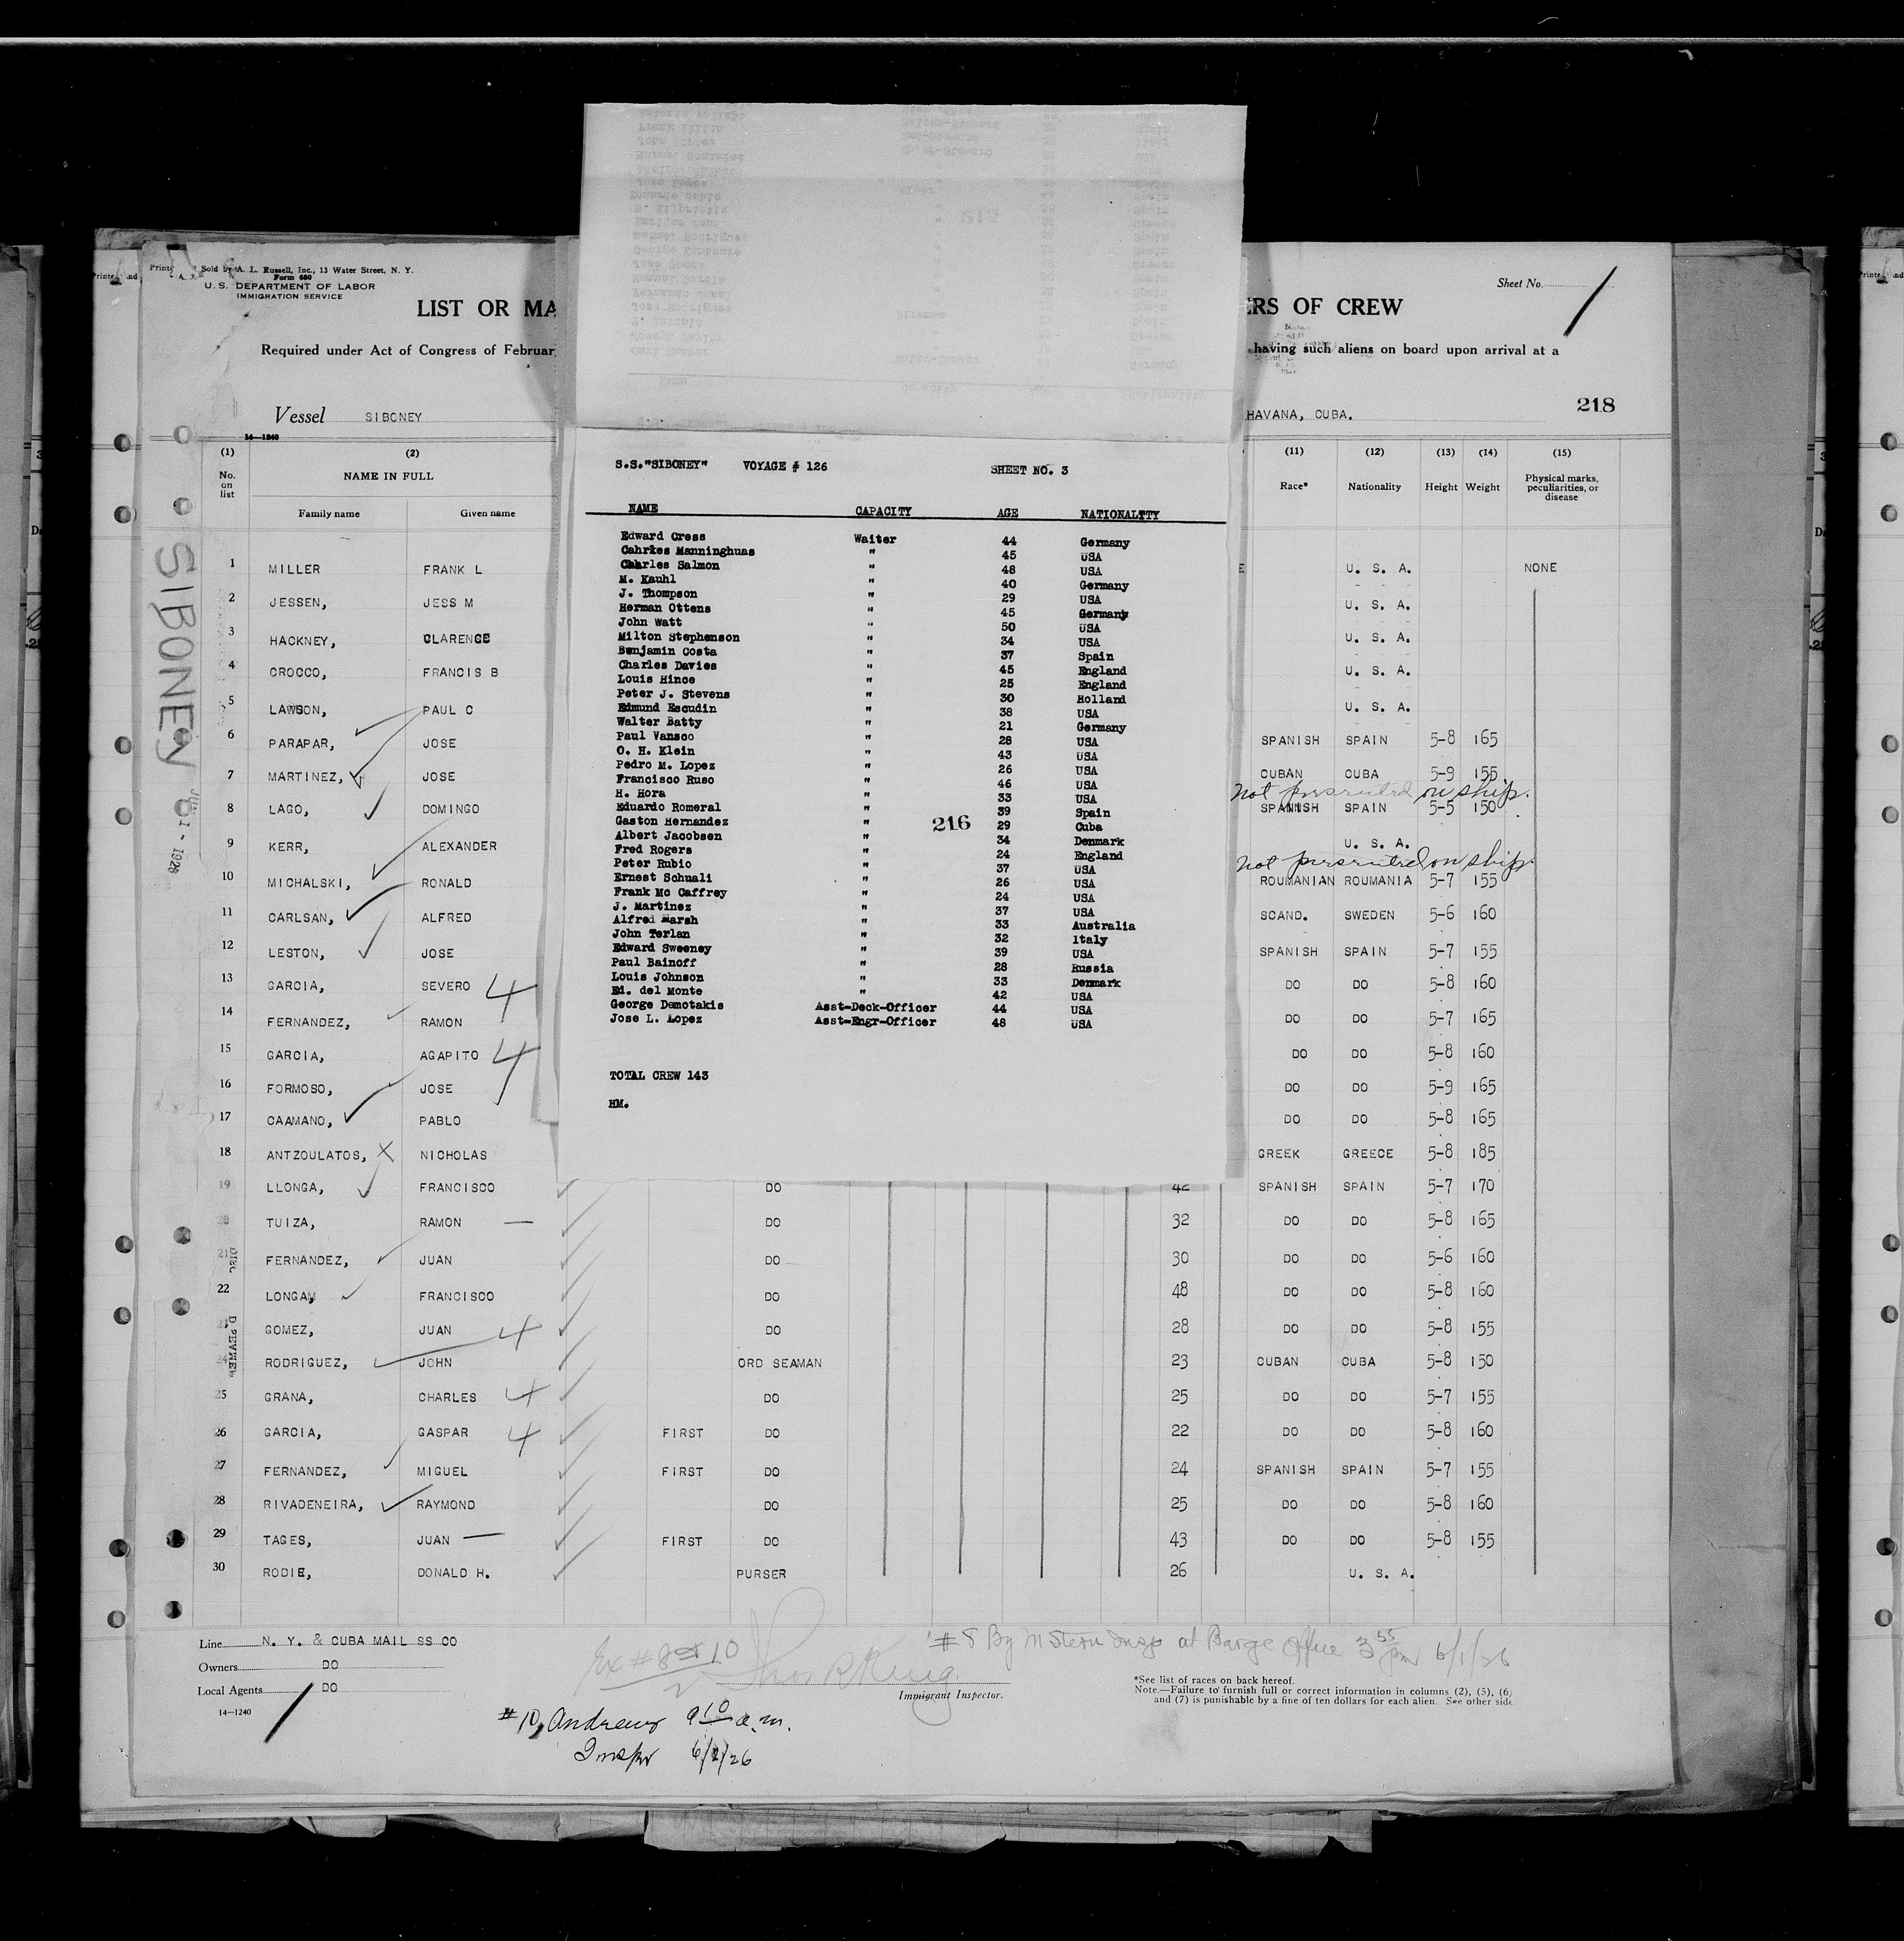 Sold by A. L. Russell, Inc., 13 Water Street, N. Y.
Form 680
U. S. DEPARTMENT OF LABOR
IMMIGRATION SERVICE
Sheet No. 1
LIST OR MA
ERS OF CREW
Required under Act of Congress of Februar
having such aliens on board upon arrival at a
Vessel SIBONEY
HAVANA, CUBA.
218
14—1240
SIBONEY
JUN 1 - 1926
S.S."SIBONEY" VOYAGE # 126 SHEET NO. 3
NAME CAPACITY AGE NATIONALTTY
Edward Cress Waiter 44 Germany
Cahrles Manninghuas " 45 USA
Charles Salmon " 48 USA
M. Kauhl " 40 Germany
J. Thompson " 29 USA
Herman Ottens " 45 Germany
John Watt " 50 USA
Milton Stephenson " 34 USA
Benjamin Costa " 37 Spain
Charles Davies " 45 England
Louis Hince " 25 England
Peter J. Stevens " 30 Holland
Edmund Escudin " 38 USA
Walter Batty " 21 Germany
Paul Vansco " 28 USA
O. H. Klein " 43 USA
Pedro M. Lopez " 26 USA
Francisco Ruso " 46 USA
H. Hora " 33 USA
Eduardo Romeral " 39 Spain
Gaston Hernandez " 29 Cuba
216
Albert Jacobsen " 34 Denmark
Fred Rogers " 24 England
Peter Rubio " 37 USA
Ernest Schuali " 26 USA
Frank Mc Caffrey " 24 USA
J. Martinez " 37 USA
Alfred Marsh " 33 Australia
John Terlan " 32 Italy
Edward Sweeney " 39 USA
Paul Bainoff " 28 Russia
Louis Johnson " 33 Denmark
Ed. del Monte " 42 USA
George Demotakis Asst-Deck-Officer 44 USA
Jose L. Lopez Asst-Engr-Officer 48 USA
TOTAL CREW 143
HM.
(1) (2) (11) (12) (13) (14) (15)
No. on list NAME IN FULL Race* Nationality Height Weight Physical marks, peculiarities, or disease
Family name Given name
1 MILLER FRANK L U. S. A. NONE
2 JESSEN, JESS M U. S. A.
3 HACKNEY, CLARENCE U. S. A.
4 CROCCO, FRANCIS B U. S. A.
5 LAWSON, PAUL C U. S. A.
6 PARAPAR, JOSE SPANISH SPAIN 5-8 165
7 MARTINEZ, JOSE CUBAN CUBA 5-9 155
Not presented on ship.
8 LAGO, DOMINGO SPANISH SPAIN 5-5 150
9 KERR, ALEXANDER U. S. A.
Not presented on ship.
10 MICHALSKI, RONALD ROUMANIAN ROUMANIA 5-7 155
11 CARLSAN, ALFRED SCAND. SWEDEN 5-6 160
12 LESTON, JOSE SPANISH SPAIN 5-7 155
13 GARCIA, SEVERO 4 DO DO 5-8 160
14 FERNANDEZ, RAMON DO DO 5-7 165
15 GARCIA, AGAPITO 4 DO DO 5-8 160
16 FORMOSO, JOSE DO DO 5-9 165
17 CAAMANO, PABLO DO DO 5-8 165
18 ANTZOULATOS, X NICHOLAS GREEK GREECE 5-8 185
19 LLONGA, FRANCISCO DO 42 SPANISH SPAIN 5-7 170
20 TUIZA, RAMON DO 32 DO DO 5-8 165
21 FERNANDEZ, JUAN DO 30 DO DO 5-6 160
22 LONGA, FRANCISCO DO 48 DO DO 5-8 160
23 GOMEZ, JUAN 4 DO 28 DO DO 5-8 155
24 RODRIGUEZ, JOHN ORD SEAMAN 23 CUBAN CUBA 5-8 150
25 GRANA, CHARLES 4 DO 25 DO DO 5-7 155
26 GARCIA, GASPAR 4 FIRST DO 22 DO DO 5-8 160
27 FERNANDEZ, MIGUEL FIRST DO 24 SPANISH SPAIN 5-7 155
28 RIVADENEIRA, RAYMOND DO 25 DO DO 5-8 160
29 TAGES, JUAN FIRST DO 43 DO DO 5-8 155
30 RODIE, DONALD H. PURSER 26 U. S. A.
Line N. Y. & CUBA MAIL SS CO
Owners DO
Local Agents DO
14—1240
Ex # 8 & 10
Thos R King
Immigrant Inspector.
# 8 By M Stern Insp at Barge Office 3 55 pm 6/1/26
*See list of races on back hereof.
Note.—Failure to furnish full or correct information in columns (2), (5), (6)
and (7) is punishable by a fine of ten dollars for each alien. See other side
#10, Andrews 9 10 a.m.
Inspr 6/2/26